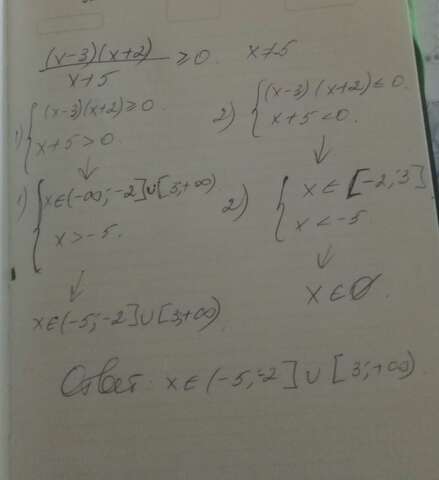 (x-3)(x+2)/x+5 ≥0. x≠-5
1) { (x-3)(x+2)≥0.
x+5>0.
2) { (x-3)(x+2)≤0.
x+5<0.
↓
↓
1) { x∈(-∞;-2]∪[3;+∞)
x>-5.
2) { x∈[-2;3]
x<-5.
↓
↓
x∈(-5;-2]∪[3;+∞)
x∈∅.
Ответ: x∈(-5;-2]∪[3;+∞)